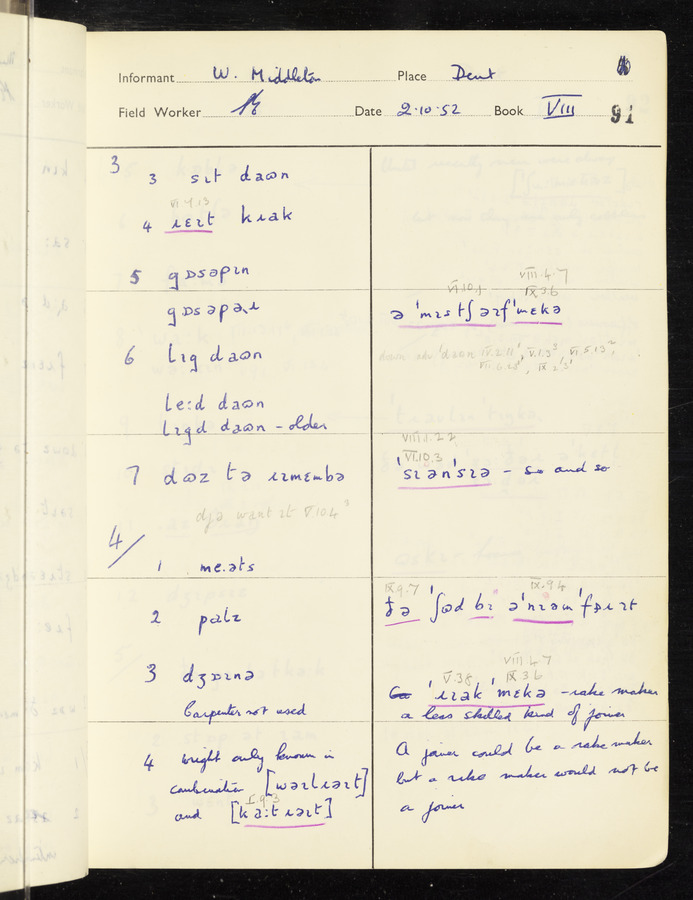 Informant W. Middleton Place Dent
Field Worker Date 2.10.52 Book VIII 91
3
3 sɪt daʊn
VI.7.13
4 ɹɛɪt kɹak
5 gɒsəpɪn
gɒsəpə,ɹ
6 lɪg daʊn
le:d daʊn
lɪgd daʊn - older
7 dʊz tə ɹɪmɛmbə
djə want it V 10 4
4/
1 me.əts
2 pɛɪlz
3 dʒɒɪnə
Carpenter not used
4 wright only known in
combination [wəɪlɹəɪt]
I.9.3
and [ka:t ɹəɪt]
VIII.4.7
VI.10.1 IX 3 6
ə 'mɪstʃəɪf'mɛkə
VIII.1.22
VI.10.3
'sɪən'sɪə - so and so
IX.9.7 IX.9.4
ðə 'ʃʊd bɪ ə'nɪəm'fɒɹɪt
VIII 4 7
V.3.8 IX 3 6
'ɹɪak 'mɛkə - rake maker
a less skilled kind of joiner
A joiner could be a rake maker
but a rake maker would not be
a joiner